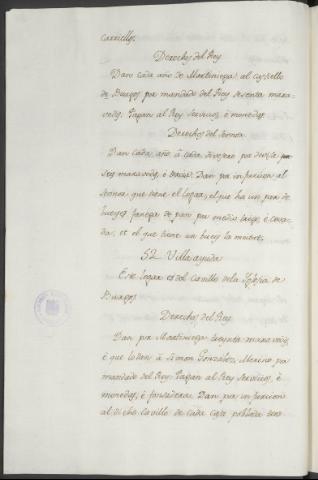 carriellos.
Derechos del Rey
Dan cada año de Martiniega al castiello
de Burgos por mandado del Rey sesenta mara-
vedis. Pagan al Rey servicios, é monedas.
Derechos del Sennor
Dan cada año á cada divisero por devisa
ses maravedis, é dozise. Dan por infurcion al
sennor que tiene el logar, el que ha un par de
bueyes fanega de pan por medio trigo, é ceva-
da, et el que tiene un buey la mitat.
52. Villa ayuda
Este logar es del cavillo de la Iglesia de
Burgos
Derechos del Rey
Dan por Martiniega treynta maravedis,
é que lo den á Simon Gonzalez, Merino por
mandado del Rey. Pagan al Rey servicios, é
monedas, é fonsadera. Dan por infurcion
al dicho cavillo de cada casa poblada dos